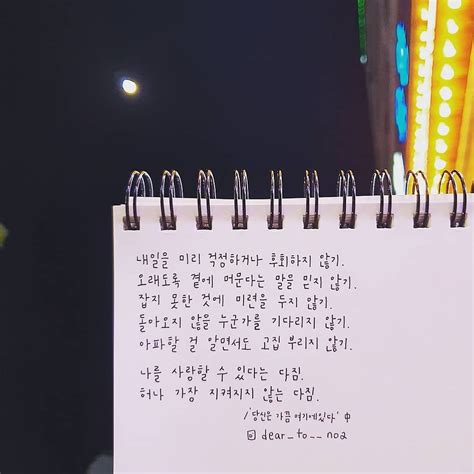 내일을 미리 걱정하거나 후회하지 않기.
오래도록 곁에 머문다는 말을 믿지 않기.
잡지 못한 것에 미련을 두지 않기.
돌아오지 않을 누군가를 기다리지 않기.
아파할 걸 알면서도 고집 부리지 않기.
나를 사랑할 수 있다는 다짐.
허나 가장 지켜지지 않는 다짐.
/'당신은 가끔 여기에 있다' 中
dear_to__no2